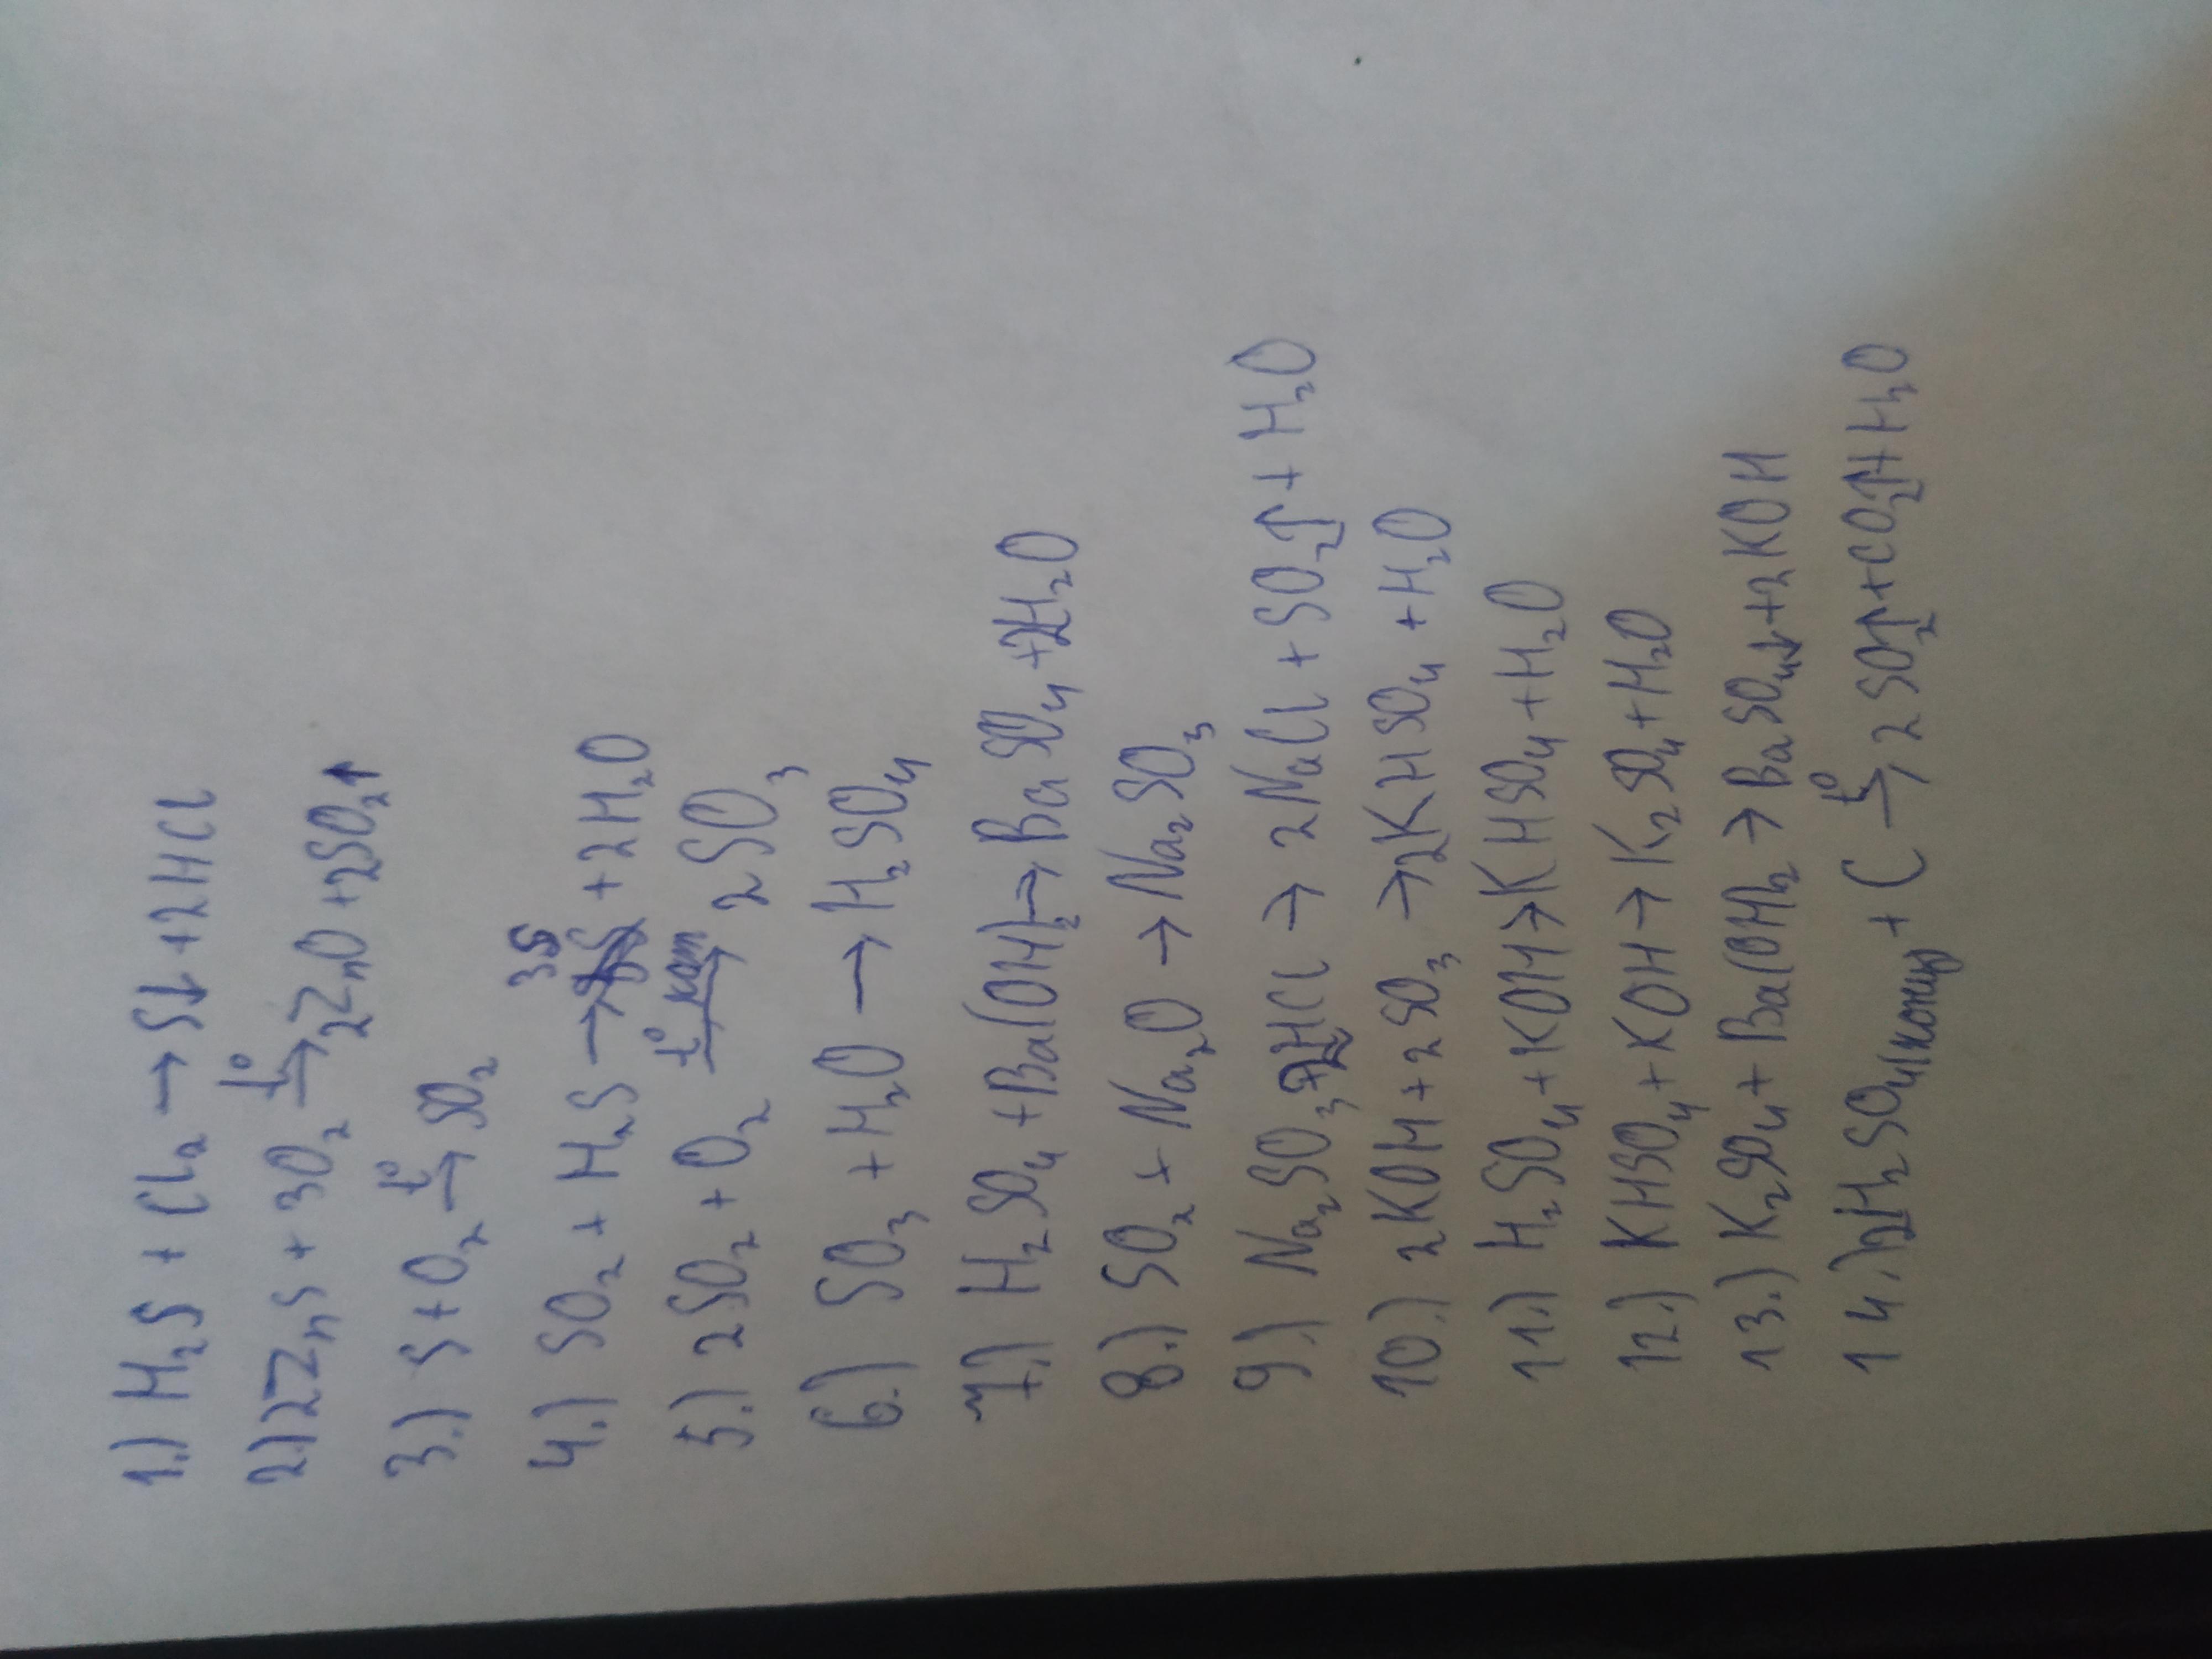 1.) H₂S + Cl₂ → S↓ + 2HCl
2.) 2ZnS + 3O₂ t°→ 2ZnO + 2SO₂↑
3.) S + O₂ t°→ SO₂
4.) SO₂ + H₂S → 3S + 2H₂O
5.) 2SO₂ + O₂ t°, кат→ 2SO₃
6.) SO₃ + H₂O → H₂SO₄
7.) H₂SO₄ + Ba(OH)₂ → BaSO₄ + 2H₂O
8.) SO₂ + Na₂O → Na₂SO₃
9.) Na₂SO₃ + 2HCl → 2NaCl + SO₂↑ + H₂O
10.) 2KOH + 2SO₃ → 2KHSO₄ + H₂O
11.) H₂SO₄ + KOH → KHSO₄ + H₂O
12.) KHSO₄ + KOH → K₂SO₄ + H₂O
13.) K₂SO₄ + Ba(OH)₂ → BaSO₄↓ + 2KOH
14.) 2H₂SO₄(конц) + C t°→ 2SO₂↑ + CO₂↑ + H₂O